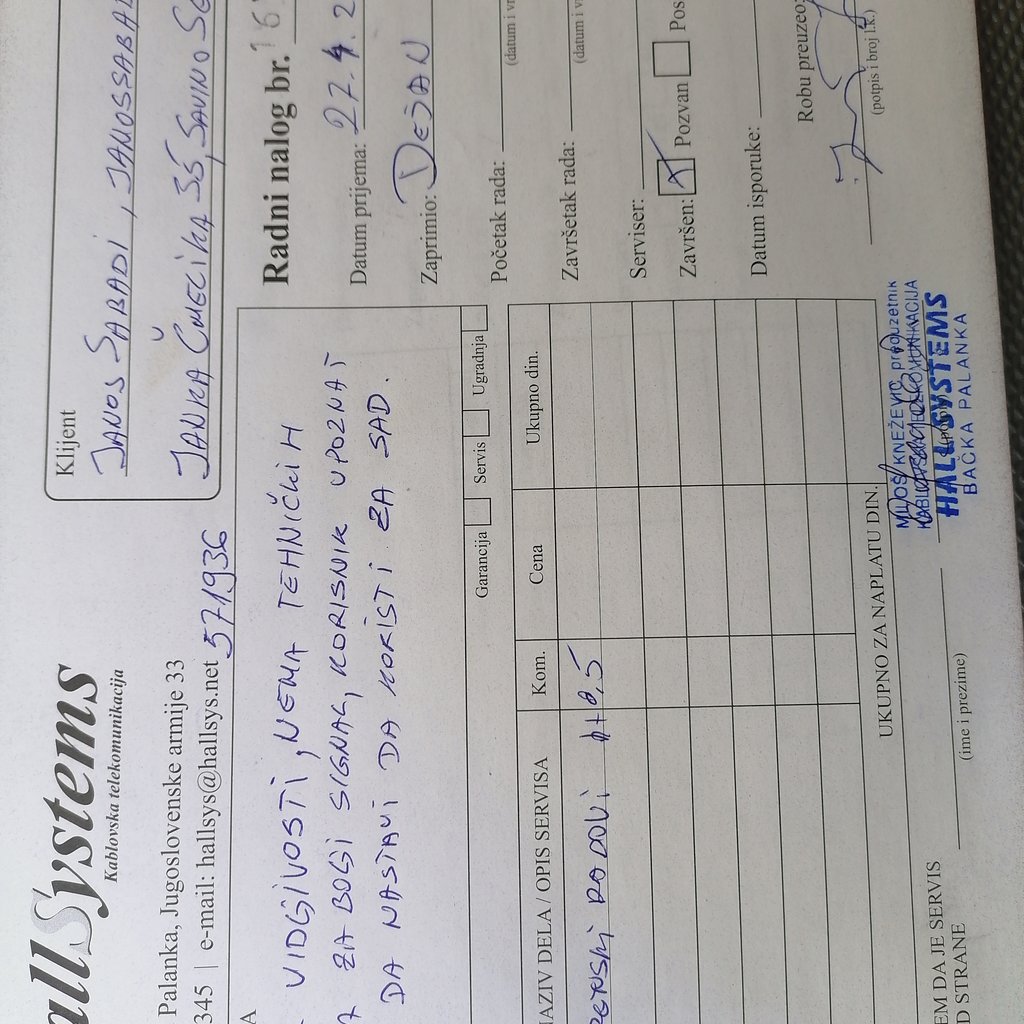 Systems
Kablovska telekomunikacija
Palanka, Jugoslovenske armije 33
345 | e-mail: hallsys@hallsys.net
571936
Klijent
JANOS ŠABADI, JANOSSABAD
JANKA ČMELIKA
Radni nalog br.
Datum prijema: 27.4.2
Zaprimio: DEJAN
Početak rada:
(datum i vr
Završetak rada:
(datum i v
Serviser:
Završen: Pozvan Pos
Datum isporuke:
Robu preuzeo:
(potpis i broj l.k.)
A
VIDLJIVOSTI, NEMA TEHNIČKIH
A ZA BOLJI SIGNAL, KORISNIK UPOZNAT
DA NASTAVI DA KORISTI ZA SAD.
Garancija Servis Ugradnja
NAZIV DELA / OPIS SERVISA Kom. Cena Ukupno din.
RADOVI
UKUPNO ZA NAPLATU DIN.
MILOŠ KNEŽEVIĆ preduzetnik
HALL SYSTEMS
BAČKA PALANKA
EM DA JE SERVIS
D STRANE
(ime i prezime)